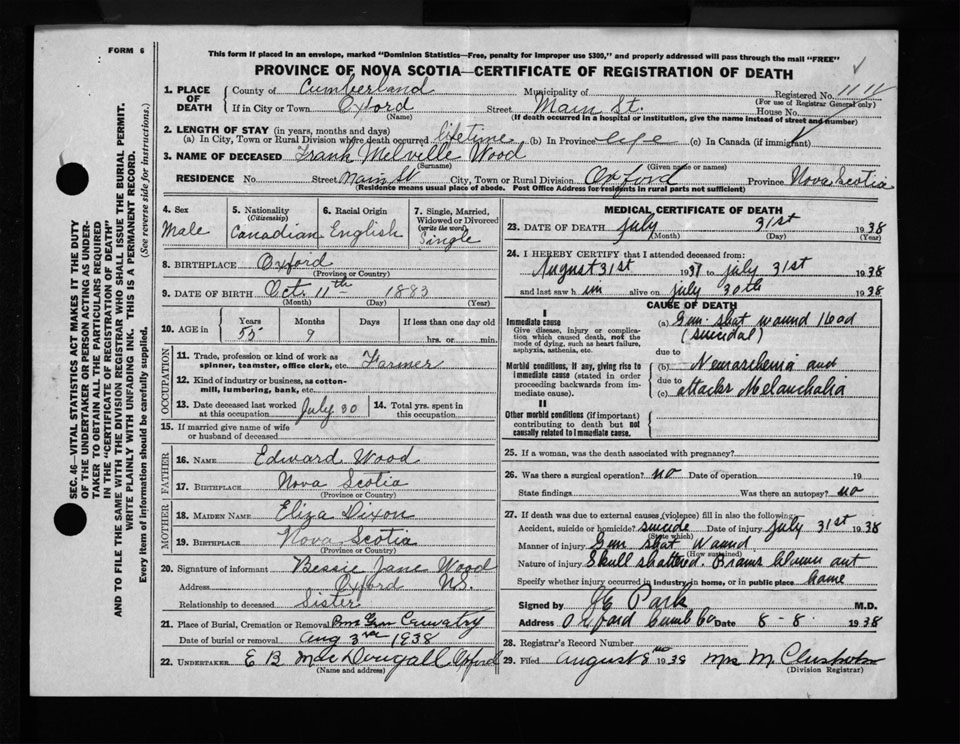 FORM 6
This form if placed in an envelope, marked "Dominion Statistics—Free, penalty for improper use $300," and properly addressed will pass through the mail "FREE"
PROVINCE OF NOVA SCOTIA—CERTIFICATE OF REGISTRATION OF DEATH
SEC. 46—VITAL STATISTICS ACT MAKES IT THE DUTY
OF THE UNDERTAKER OR PERSON ACTING AS UNDER-
TAKER TO OBTAIN ALL THE PARTICULARS REQUIRED
IN THE "CERTIFICATE OF REGISTRATION OF DEATH"
AND TO FILE THE SAME WITH THE DIVISION REGISTRAR WHO SHALL ISSUE THE BURIAL PERMIT.
WRITE PLAINLY WITH UNFADING INK. THIS IS A PERMANENT RECORD.
Every item of information should be carefully supplied. (See reverse side for instructions.)
1. PLACE OF DEATH
County of Cumberland Municipality of Registered No. 1111
(For use of Registrar General only)
If in City or Town Oxford Street Main St. House No.
(Name) (If death occurred in a hospital or institution, give the name instead of street and number)
2. LENGTH OF STAY (in years, months and days)
(a) In City, Town or Rural Division where death occurred lifetime (b) In Province life (c) In Canada (if immigrant)
3. NAME OF DECEASED Frank Melville Wood
(Surname) (Given name or names)
RESIDENCE No. Street Main St City, Town or Rural Division Oxford Province Nova Scotia
(Residence means usual place of abode. Post Office Address for residents in rural parts not sufficient)
4. Sex
Male
5. Nationality
(Citizenship)
Canadian
6. Racial Origin
English
7. Single, Married,
Widowed or Divorced
(write the word)
Single
8. BIRTHPLACE Oxford
(Province or Country)
9. DATE OF BIRTH Oct. 11th 1883
(Month) (Day) (Year)
10. AGE in
Years Months Days If less than one day old
55 9 hrs. or min.
OCCUPATION
11. Trade, profession or kind of work as
spinner, teamster, office clerk, etc. Farmer
12. Kind of industry or business, as cotton-
mill, lumbering, bank, etc.
13. Date deceased last worked
at this occupation July 30
14. Total yrs. spent in
this occupation
15. If married give name of wife
or husband of deceased
FATHER
16. NAME Edward Wood
17. BIRTHPLACE Nova Scotia
(Province or Country)
MOTHER
18. MAIDEN NAME Eliza Dixon
19. BIRTHPLACE Nova Scotia
(Province or Country)
20. Signature of informant Bessie Jane Wood
Address Oxford N.S.
Relationship to deceased Sister
21. Place of Burial, Cremation or Removal
Date of burial or removal Aug 3rd 1938
22. UNDERTAKER E B MacDougall Oxford
(Name and address)
MEDICAL CERTIFICATE OF DEATH
23. DATE OF DEATH July 31st 1938
(Month) (Day) (Year)
24. I HEREBY CERTIFY that I attended deceased from:
August 31st 1937 to July 31st 1938
and last saw h im alive on July 30th 1938
CAUSE OF DEATH
I
Immediate cause
Give disease, injury or complica-
tion which caused death, not the
mode of dying, such as heart failure,
asphyxia, asthenia, etc.
(a) Gun shot wound
(suicidal)
due to
Morbid conditions, if any, giving rise to
immediate cause (stated in order
proceeding backwards from im-
mediate cause).
(b) and
due to
(c) attacks Melancholia
II
Other morbid conditions (if important)
contributing to death but not
causally related to immediate cause.
25. If a woman, was the death associated with pregnancy?
26. Was there a surgical operation? no Date of operation 19
State findings Was there an autopsy? no
27. If death was due to external causes (violence) fill in also the following:
Accident, suicide or homicide? suicide Date of injury July 31st 1938
(State which)
Manner of injury Gun shot Wound
(How sustained)
Nature of injury Skull shattered. Brains blown out
Specify whether injury occurred in industry, in home, or in public place home
Signed by J E Park M.D.
Address Oxford Cumb Co Date 8 - 8 - 1938
28. Registrar's Record Number
29. Filed August 8th 1938 Mrs M Chisholm
(Division Registrar)